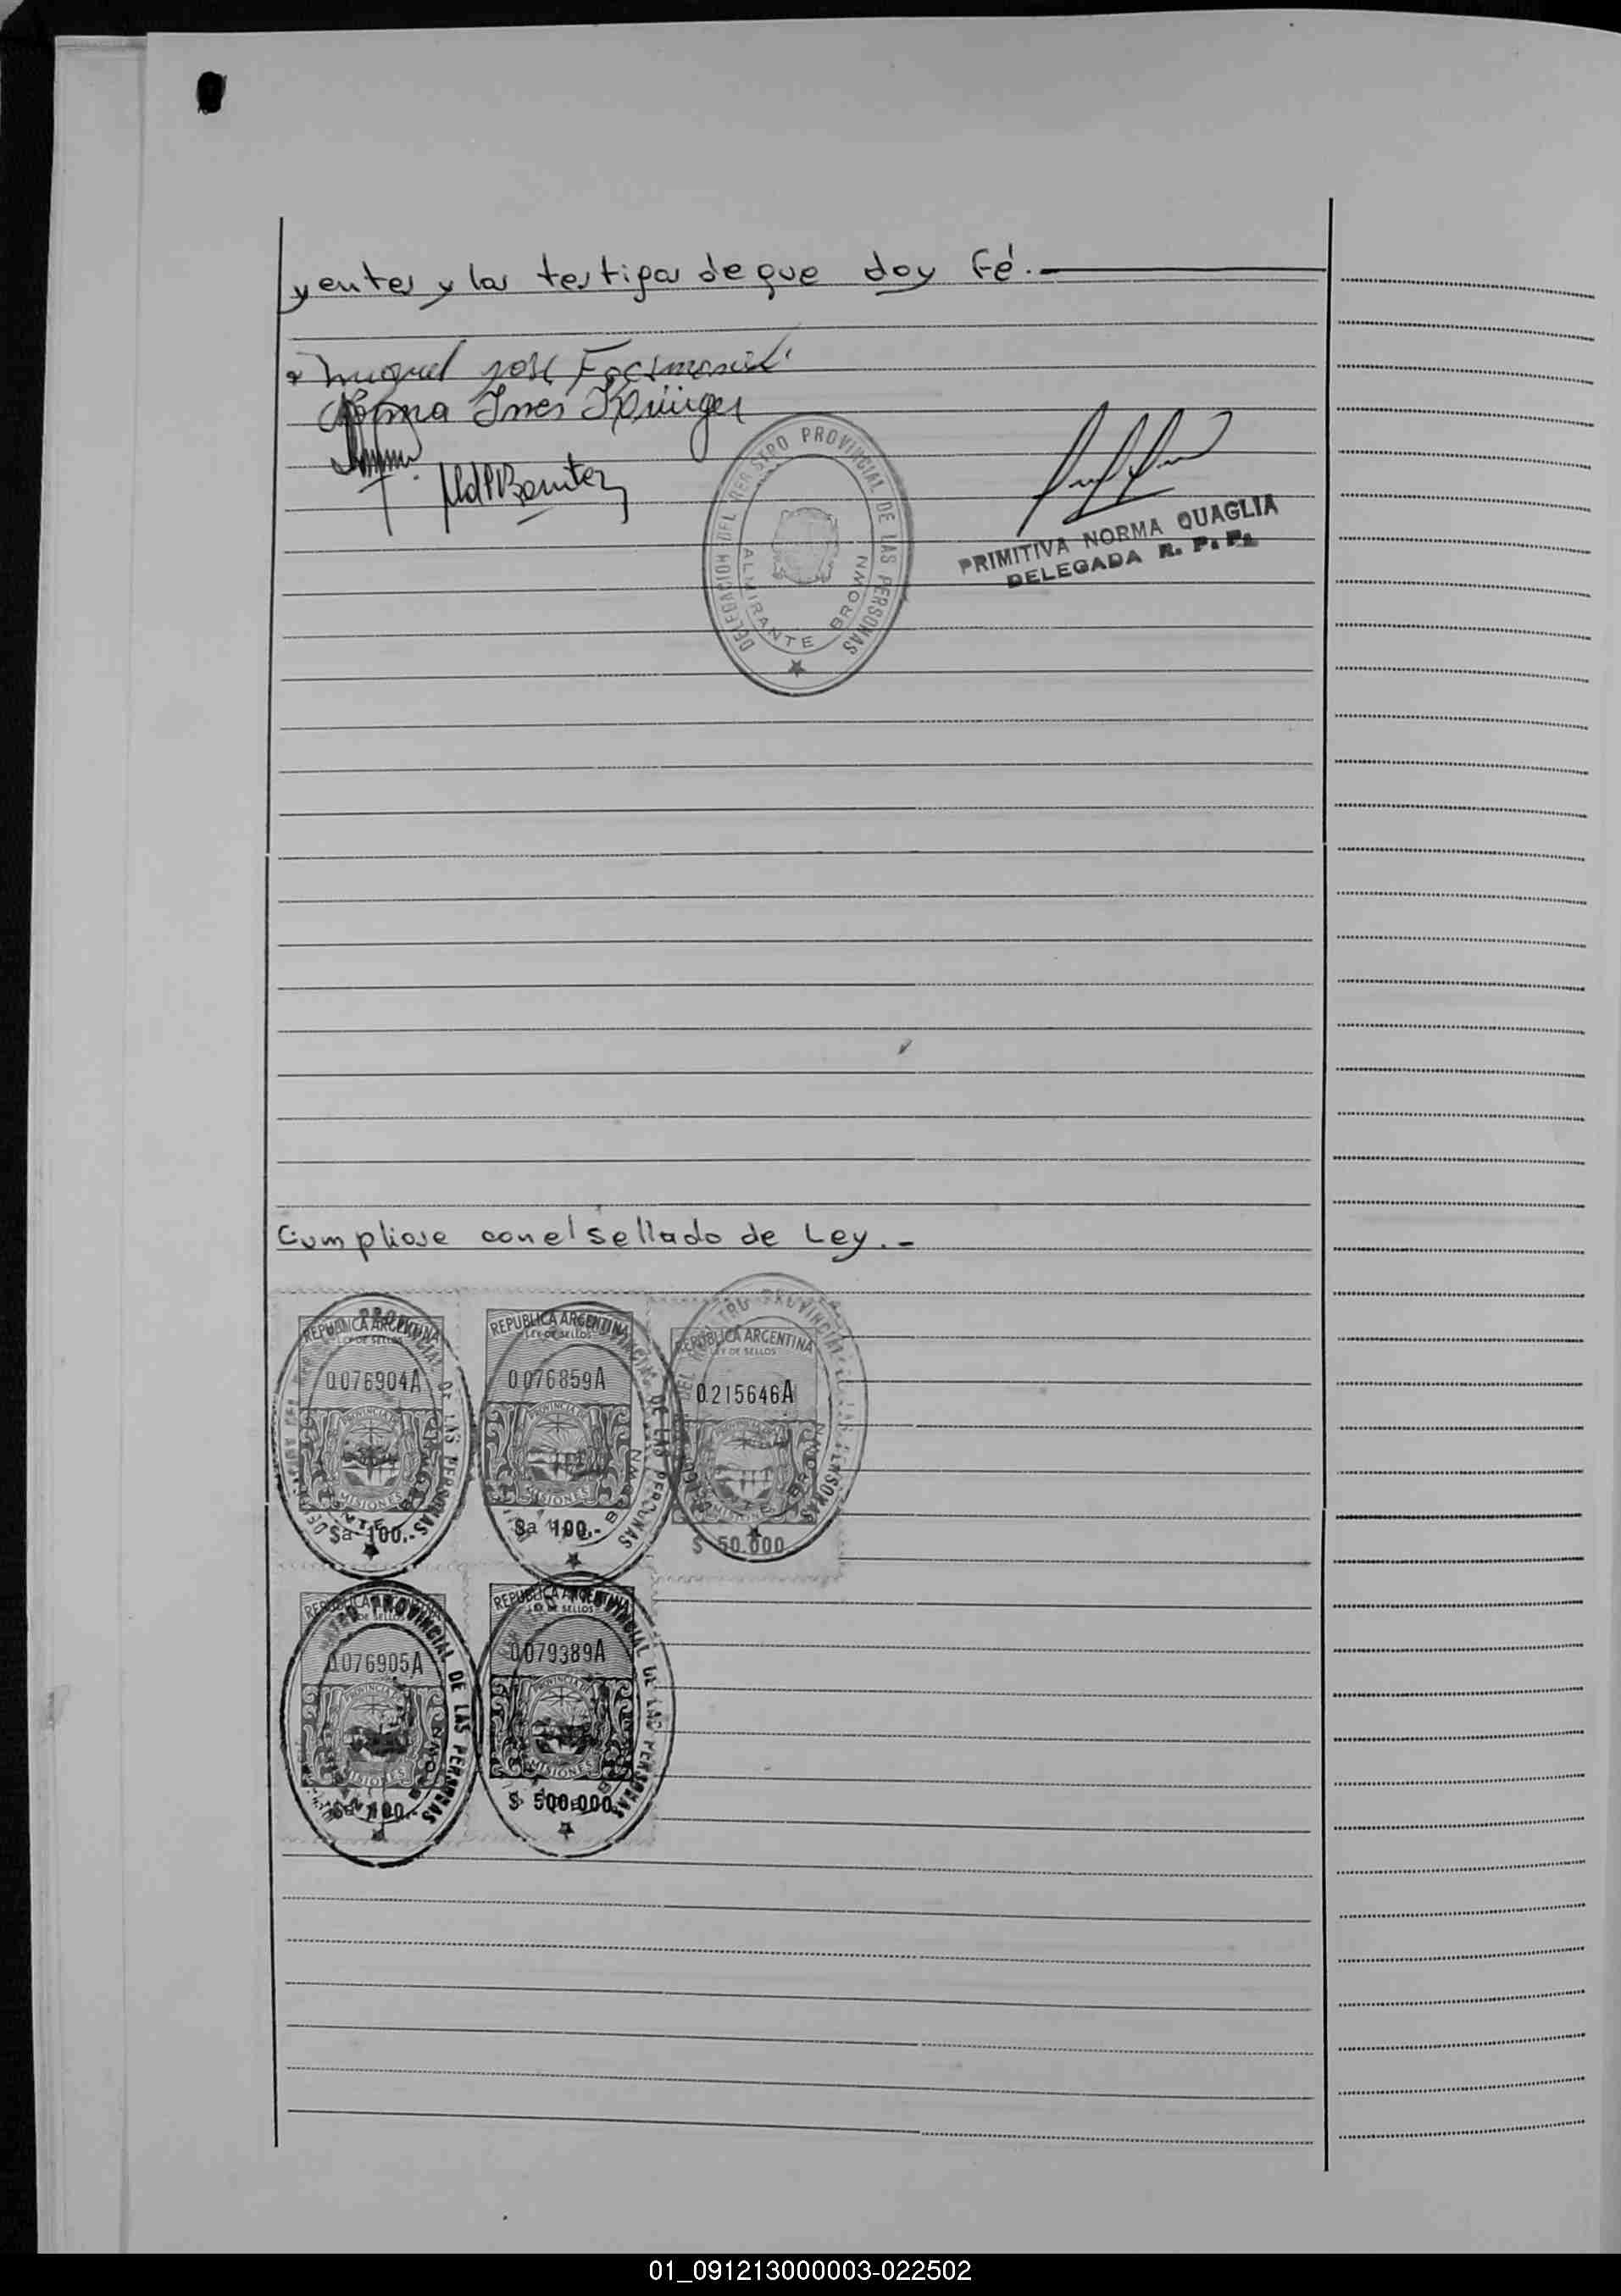 yentes y los testigos de que doy Fé.-
Miguel José
Norma Ines Krüger
MdlBenitez
DELEGACION DEL REGISTRO PROVINCIAL DE LAS PERSONAS
ALMIRANTE BROWN
PRIMITIVA NORMA QUAGLIA
DELEGADA R. P. P.
Cumpliose con el sellado de Ley.-
REPUBLICA ARGENTINA
LEY DE SELLOS
0076904A
PROVINCIA DE
MISIONES
$a 100.-
REPUBLICA ARGENTINA
LEY DE SELLOS
0076859A
PROVINCIA DE
MISIONES
$a 100.-
REPUBLICA ARGENTINA
LEY DE SELLOS
0215646A
MISIONES
$ 50.000
REPUBLICA ARGENTINA
LEY DE SELLOS
0076905A
PROVINCIA DE
MISIONES
$a 100.-
REPUBLICA ARGENTINA
LEY DE SELLOS
0079389A
PROVINCIA DE
MISIONES
$ 500.000
01_091213000003-022502